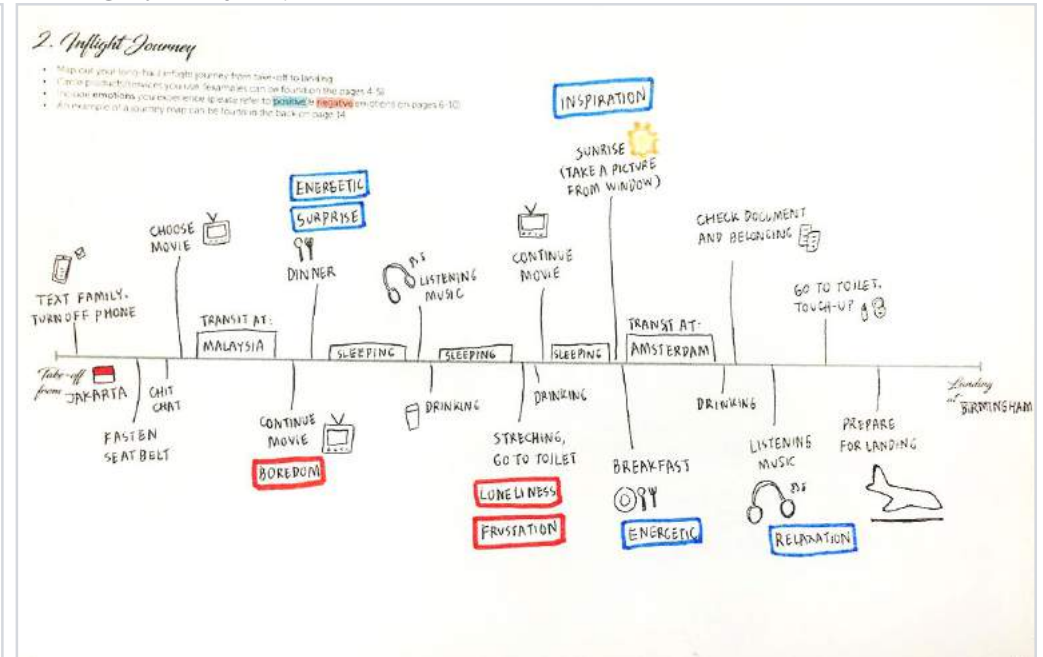 2. Inflight Journey
• Map out your long-haul inflight journey from take-off to landing
• Circle products/services you use (examples can be found on the pages 4-5)
• Include emotions you experience (please refer to positive & negative emotions on pages 6-10)
• An example of a journey map can be found in the back on page 14
INSPIRATION
SUNRISE
(TAKE A PICTURE
FROM WINDOW)
ENERGETIC
SURPRISE
DINNER
CHOOSE
MOVIE
LISTENING
MUSIC
CONTINUE
MOVIE
CHECK DOCUMENT
AND BELONGING
GO TO TOILET,
TOUCH-UP
TEXT FAMILY,
TURN OFF PHONE
TRANSIT AT:
MALAYSIA
SLEEPING
SLEEPING
SLEEPING
TRANSIT AT:
AMSTERDAM
Take-off
from JAKARTA
Landing
at BIRMINGHAM
FASTEN
SEATBELT
CHIT
CHAT
CONTINUE
MOVIE
BOREDOM
DRINKING
DRINKING
STRECHING,
GO TO TOILET
LONELINESS
FRUSSATION
BREAKFAST
ENERGETIC
DRINKING
LISTENING
MUSIC
RELAXATION
PREPARE
FOR LANDING